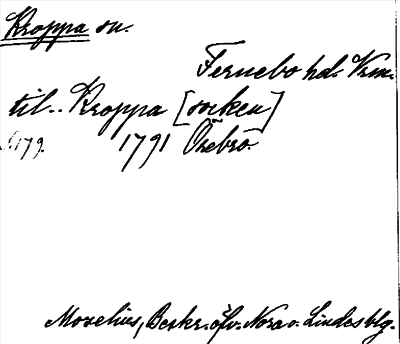 Kroppa sn.
Fernebo hd. Vrm.
til.. Kroppa [socken]
s. 179. 1791 Örebro.
Moselius, Beskr. öfv. Nora o. Lindes blg.